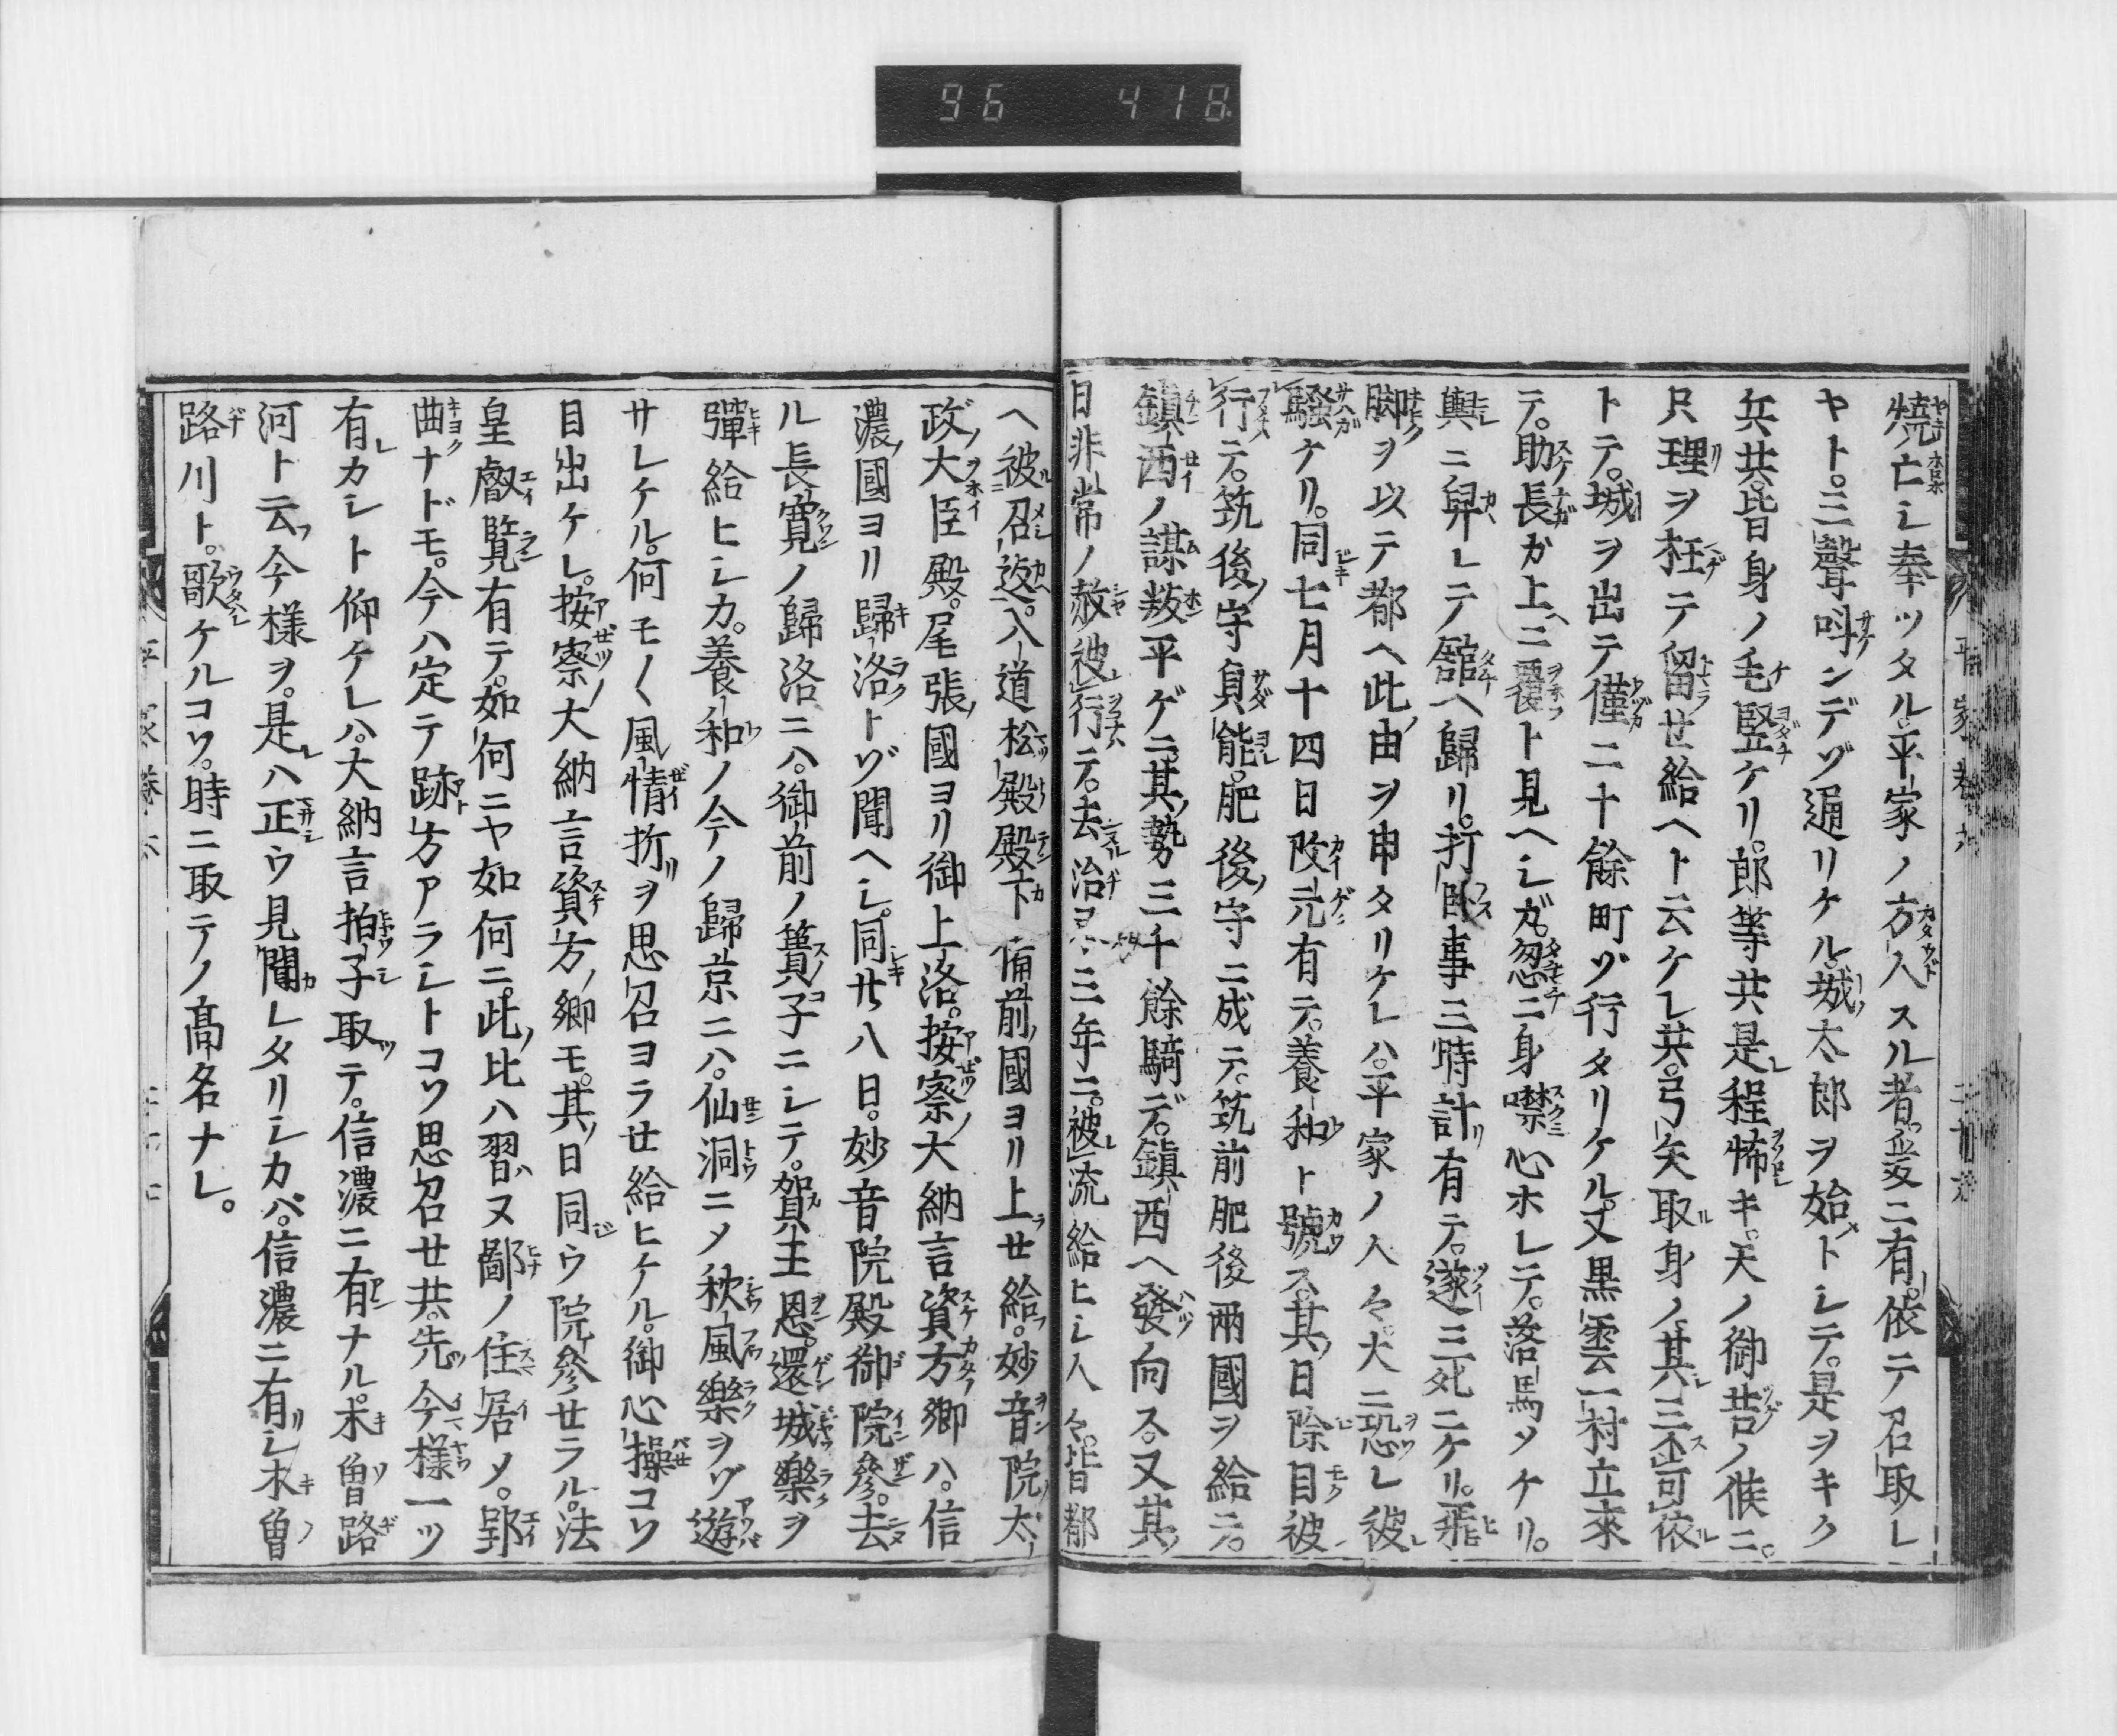 96 418
燒亡シ奉ツタル平家ノ方人スル者爰ニ有。依テ召取レ
ヤト。三聲呌ンデゾ通リケル。城太郎ヲ始トシテ。是ヲキク
兵共。皆身ノ毛竪ケリ。郎等共是程怖キ。天ノ御告ノ候ニ。
只理ヲ枉テ留せ給ヘト云ケレ共。弓矢取身ノ。其三不可依
トテ。城ヲ出テ僅ニ十餘町ゾ行タリケル。又黒雲一村立來
テ。助長ガ上ニ覆ト見ヘシガ。忽ニ身噤心ホレテ。落馬メケリ。
輿ニ舁レテ舘ヘ歸リ。打臥事三時計有テ。遂ニ死ニケリ。飛
脚ヲ以テ都ヘ此由ヲ申タリケレハ。平家ノ人々。大ニ恐レ彼
騷ケリ。同七月十四日改元有テ。養和ト號ス。其日除目被
行テ。筑後守貞能。肥後守ニ成テ。筑前肥後兩國ヲ給テ。
鎮西ノ謀叛平ゲニ。其勢三千餘騎デ。鎮西ヘ發向ス。又其
日非常ノ赦被行テ。去治三年ニ。被流給ヒシ人々。皆都
ヘ被召返。入道松殿殿下備前國ヨリ上ラせ給。妙音院太
政大臣殿。尾張國ヨリ御上洛。按察大納言資方卿ハ。信
濃國ヨリ歸洛トゾ聞ヘシ。同廿八日。妙音院殿御院參。去
ル長寛ノ歸洛ニハ。御前ノ簀子ニシテ。賀王恩。還城樂ヲ
彈給ヒシカ。養和ノ今ノ歸京ニハ。仙洞ニメ秋風樂ヲゾ遊
サレケル。何モ〱風情折ヲ思召ヨラせ給ヒケル。御心操コソ
目出ケレ。按察大納言資方ノ卿モ。其日同ウ院參せラル。法
皇叡覽有テ。如何ニヤ如何ニ。此比ハ習ヌ鄙ノ住居メ。郢
曲ナドモ。今ハ定テ跡方アラシトコソ思召せ共。先今樣一ツ
有カシト仰ケレハ。大納言拍子取テ。信濃ニ有ナル。木曾路
河ト云今樣ヲ。是ハ正ウ見聞レタリシカバ。信濃ニ有シ木曾
路川ト。歌ケルコソ。時ニ取テノ高名ナレ。